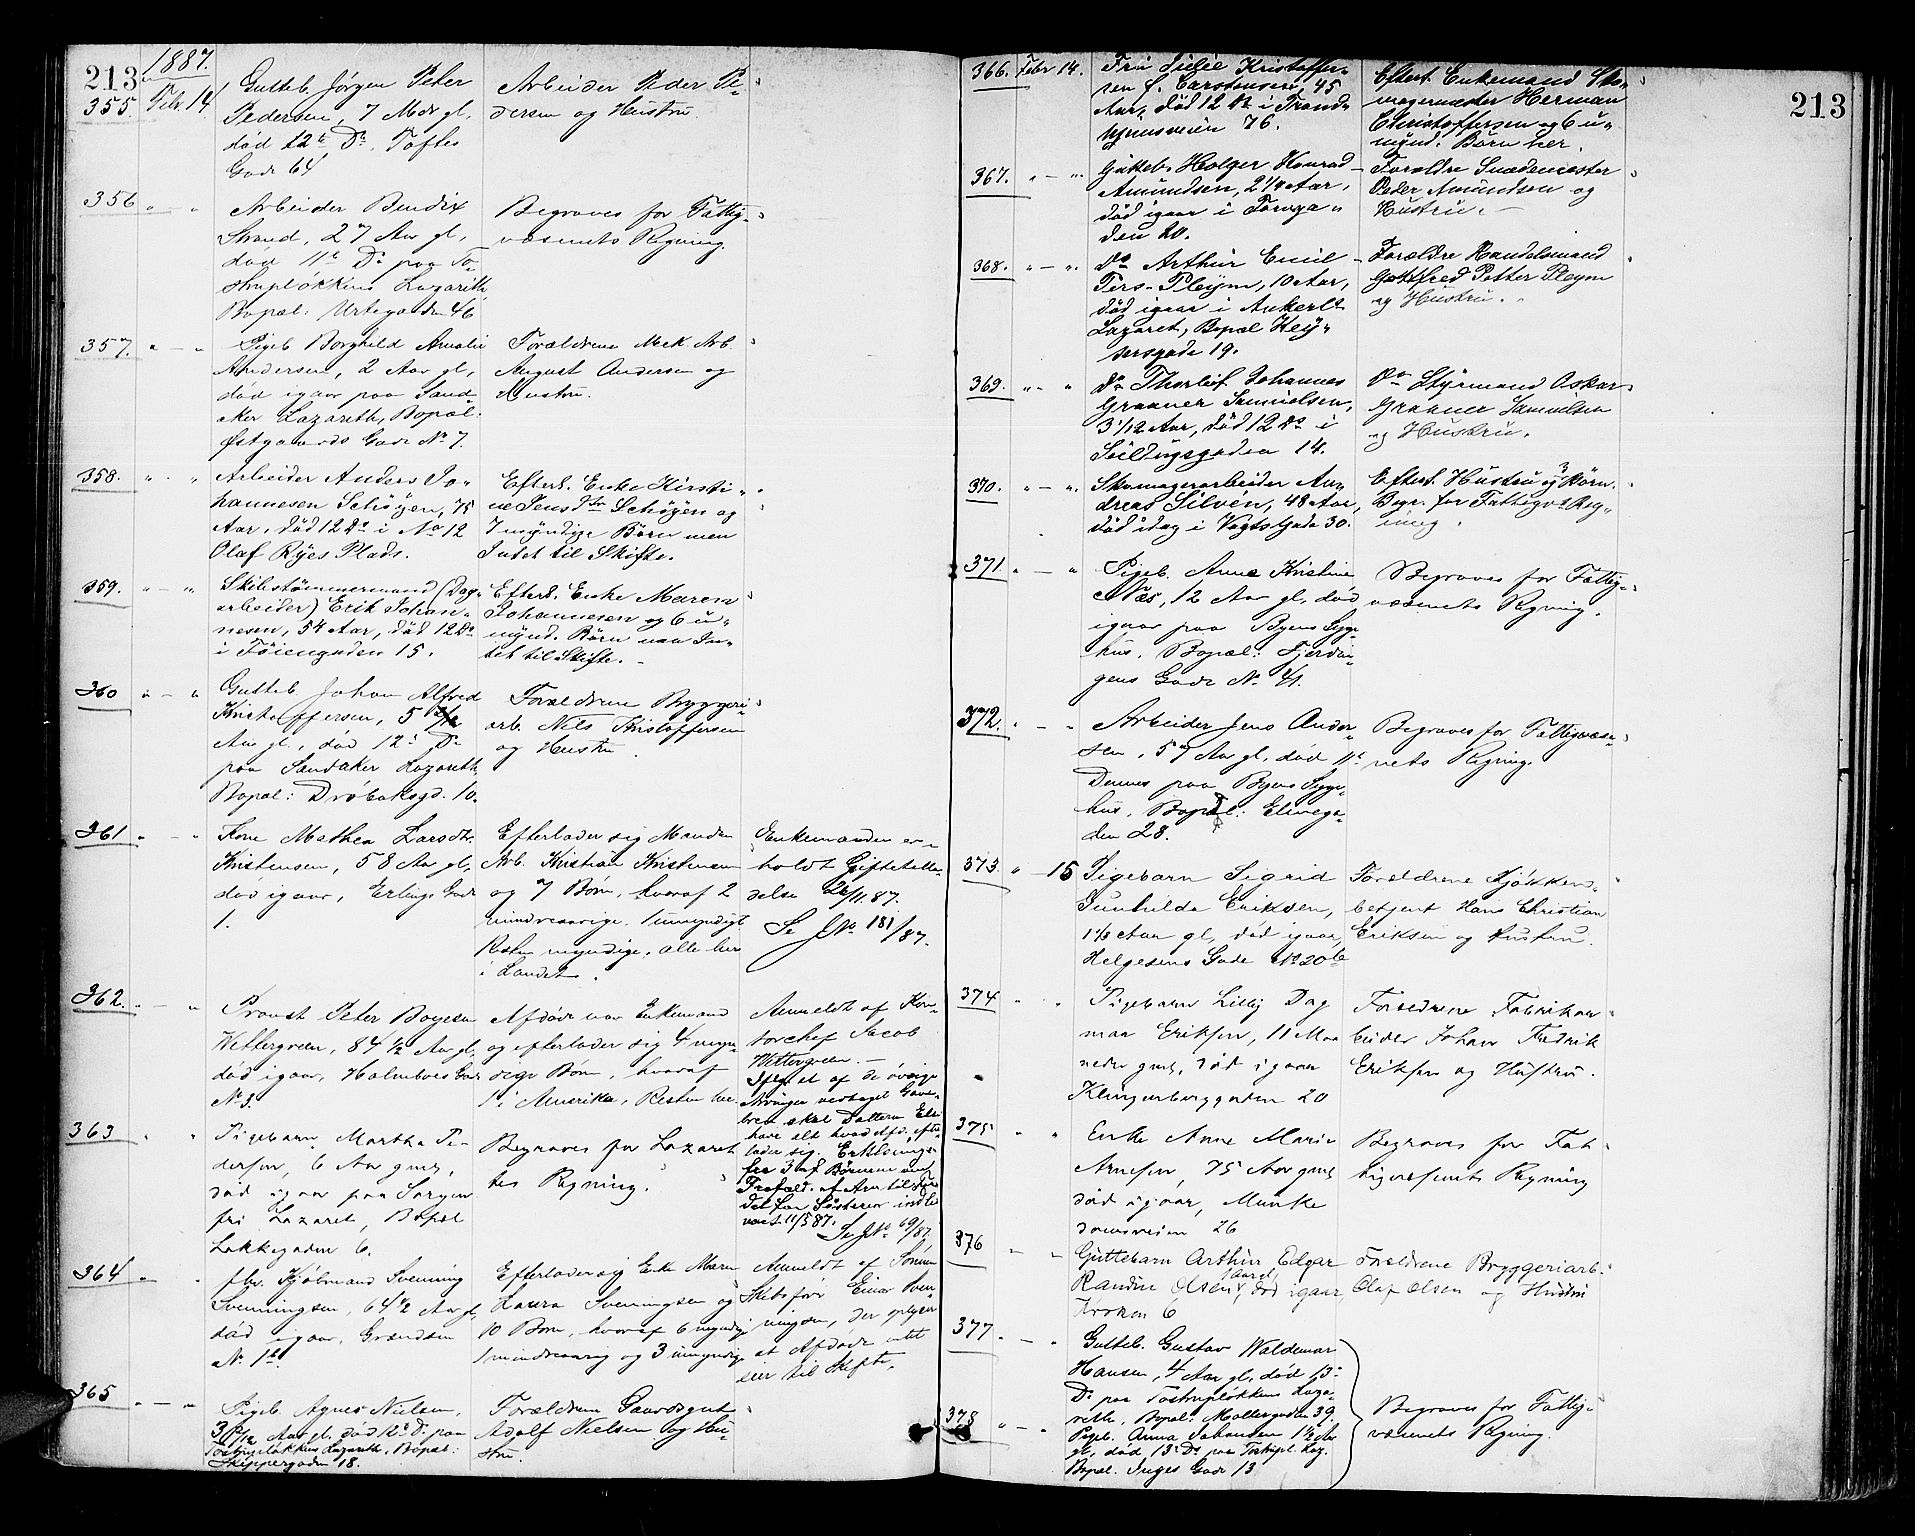 213
1887.
355. Febr. 14
Gutteb. Jörgen Peter
Pedersen, 7 Mdr gl,
död 12te Ds. Toftes
Gade 64
Arbeider Peder Pe-
dersen og Hustru
356 " — "
Arbeider Bendix
Strand, 27 Aar gl,
död 11te Ds paa
Lazareth,
Bopæl: Urtegaden 46
Begraves for Fattig-
væsenets Regning.
357. " — "
Pigeb Borghild Amalie
Andersen, 2 Aar gl,
död igaar paa Sand-
aker Lazareth, Bopæl:
Østgaards Gade No 7.
Forældrene Mek. Arb.
August Andersen og
Hustru.
358. " — "
Arbeider Anders Jo-
hannesen Schöyen, 75
Aar, död 12 Ds i No 12
Olaf Ryes Plads.
Efterl. Enke Kirsti-
ne Jensdtr Schöyen og
7 myndige Börn men
Intet til Skifte.
359. " — "
Skibstömmermand (Dag-
arbeider) Erik Johan-
nesen, 54 Aar, död 12 Ds
i Föiengaden 15.
Efterl. Enke Maren
Johannesen og 6 u-
mynd. Börn men In-
tet til Skifte.
360 " — "
Gutteb. Johan Alfred
Kristoffersen, 5
Aar gl., död 12te Ds
paa Sandaker Lazareth,
Bopæl: Dröbaksgd. 10.
Forældrene Bryggeri-
arb. Nils Kristoffersen
og Hustru
361 " — "
Kone Mathea Larsdtr.
Kristensen, 58 Aar gl,
död igaar, Erlings Gade
1.
Efterlader sig Manden
Arb. Kristian Kristensen
og 7 Börn, hvoraf 2
mindreaarige, 1 umyndigt
Resten myndige, alle her
i Landet.
Enkemanden er-
holdt Giftetilla-
delse 26/11.87.
Se JNo 181/87.
362. " — "
Provst Peter Boyesen
Wettergreen, 84 1/2 Aar gl,
död igaar, Holmboes Gade
No 3.
Afdöde var Enkemand
og efterlader sig 4 myn-
dige Börn, hvoraf
1 i Amerika, Resten her
Anmeldt af Kon-
torchef Jacob
Wettergreen. —
Ifølge et af de övrige
Arvinger vedtaget Gave-
brev skal Datteren
have alt hvad Afd. efter-
lader sig. Erklæringer
fra 3 af Börnene om
Frafald af Arv til
for Sösteren indle-
veret 11/5 87.
Se JNo 69/87.
363 " "
Pigebarn Martha Pe-
dersen, 6 Aar gml,
död igaar paa Sorgen-
fri Lazaret, Bopæl
Lakkegaden 6.
Begraves for Lazaret-
tes Regning.
364 " "
fhv. Kjöbmand Svenning
Svenningsen, 64 1/2 Aar gl,
död igaar, Grændsen
No 1b.
Efterlader sig Enke Maren
Laura Svenningsen og
10 Börn, hvoraf 6 myndige
1 mindreaarig og 3 umyndige
Anmeldt af Sönnen
Skibsförer Einar Sven-
ningsen, der oplyser
at Afdöde intet
eier til Skifte.
365 " — "
Pigeb. Agnes Nielsen,
3 Aar gl. död 12te Ds paa
Tostruplökkens Lazareth, Bopæl:
Skippergaden 18.
Forældrene Gaardsgut
Adolf Nielsen og Hu-
stru.
213
366. Febr 14.
Fru Kristoffer-
sen f. Carstensen, 45
Aar, död 12 Ds i Trond-
hjemsveien 76.
Efterl. Enkemand Sko-
magermester Herman
Christoffersen og 6 u-
mynd. Börn her.
367. " — "
Gutteb. Holger Konrad
Amundsen, 2 1/4 Aar,
död igaar i Torvga-
den 20.
Forældre Snedkermester
Peder Amundsen og
Hustru. —
368. " — "
Do Arthur Emil
Pleym, 10 Aar,
död igaar i Ankerl.
Lazaret, Bopæl Key-
sersgade 19.
Forældre Handelsmand
Gottfred Petter Pleym
og Hustru.
369. " — "
Do Thorleif Johannes
Graaner Samuelsen,
3 1/12 Aar, död 12 Ds i
14.
Do Styrmand Oskar
Graaner Samuelsen
og Hustru.
370. " — "
Skomagerarbeider An-
dreas Silvén, 48 Aar,
död idag i Vogts Gade 30.
Efterl. Hustru og 3 Börn.
Begr. for Fattigv. Reg-
ning.
371 " — "
Pigeb. Anne Kristine
Næs, 12 Aar gl, död
igaar paa Byens Syge-
hus. Bopæl: Fjerdin-
gens Gade No 41.
Begraves for Fattig-
væsenets Regning.
372. " — "
Arbeider Jens Ander-
sen, 57 Aar gl, död 11te
Dennes paa Byens Syge-
hus, Bopæl: Elvega-
den 28.
Begraves for Fattigvæse-
nets Regning.
373. " 15
Pigebarn Sigrid
Gunhilda Eriksen,
1 1/3 Aar gl, död igaar,
Helgesens Gade No 20b
Forældrene Kjökken-
betjent Hans Christian
Eriksen og Hustru.
374 " "
Pigebarn Lilly Dag
mar Eriksen, 11 Maa
neder gml, död igaar
Klingenberggaden 20
Forældrene Fabrikar
beider Johan Fredrik
Eriksen og Hustru.
375 " "
Enke Anne Marie
Arnesen, 75 Aar gml
död igaar, Munke
damsveien 26
Begraves for Fat-
tigvæsenets Regning
376 " "
Guttebarn Arthur Edgar
Randin Olsen, 1 Aar gl, död igaar,
Kroken 6
Forældrene Bryggeriarb.
Olaf Olsen og Hustru
377 " — "
Gutteb. Gustav Waldemar
Hansen, 4 Aar gl, död 13te
Ds paa Tostruplökkens Laza-
reth, Bopæl: Mollergaden 39.
378 " — "
Pigeb. Anna Johansen 1 1/2 Aar
gl, död 13te Ds paa Tostrupl. Laz.
Bopæl. Inges Gade 13
Begraves for Fattig-
væsenets Regning.